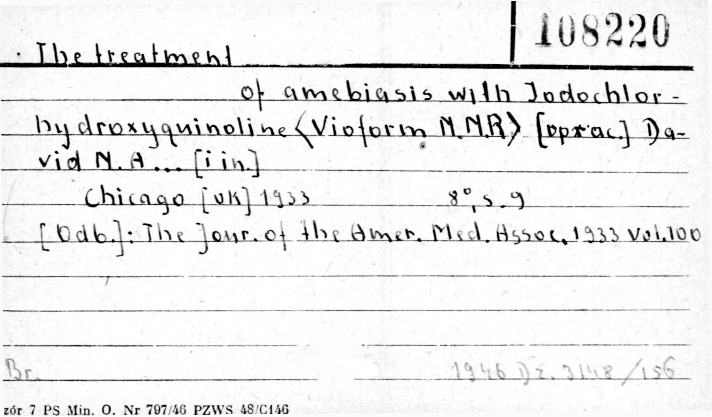 108220
The treatment
of amebiasis with Jodochlor-
hydroxyquinoline <Vioform N.N.R> [oprac.] Da-
vid N.A... [i in.]
Chicago [UK] 1933 8°, s. 9
[Odb.]: The Jour. of the Amer. Med. Assoc. 1933 vol. 100
Br. 1946 Dz. 3148/156
zór 7 PS Min. O. Nr 797/46 PZWS 48/C146